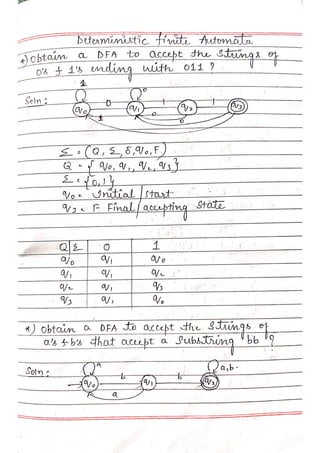 Deterministic finite Automata
*) Obtain a DFA to accept the strings of
0's & 1's ending with 011 ?
Soln :
1 0
q0 0 q1 1 q2 1 q3
0
1 0
Σ = (Q, Σ, δ, q0, F)
Q = { q0, q1, q2, q3 }
Σ = {0, 1}
q0 = Initial / start
q3 = F Final / accepting State
Q Σ 0 1
q0 q1 q0
q1 q1 q2
q2 q1 q3
q3 q1 q0
*) Obtain a DFA to accept the Strings of
a's & b's that accept a Substring bb ?
Soln :
a a,b.
q0 b q1 b q2
a